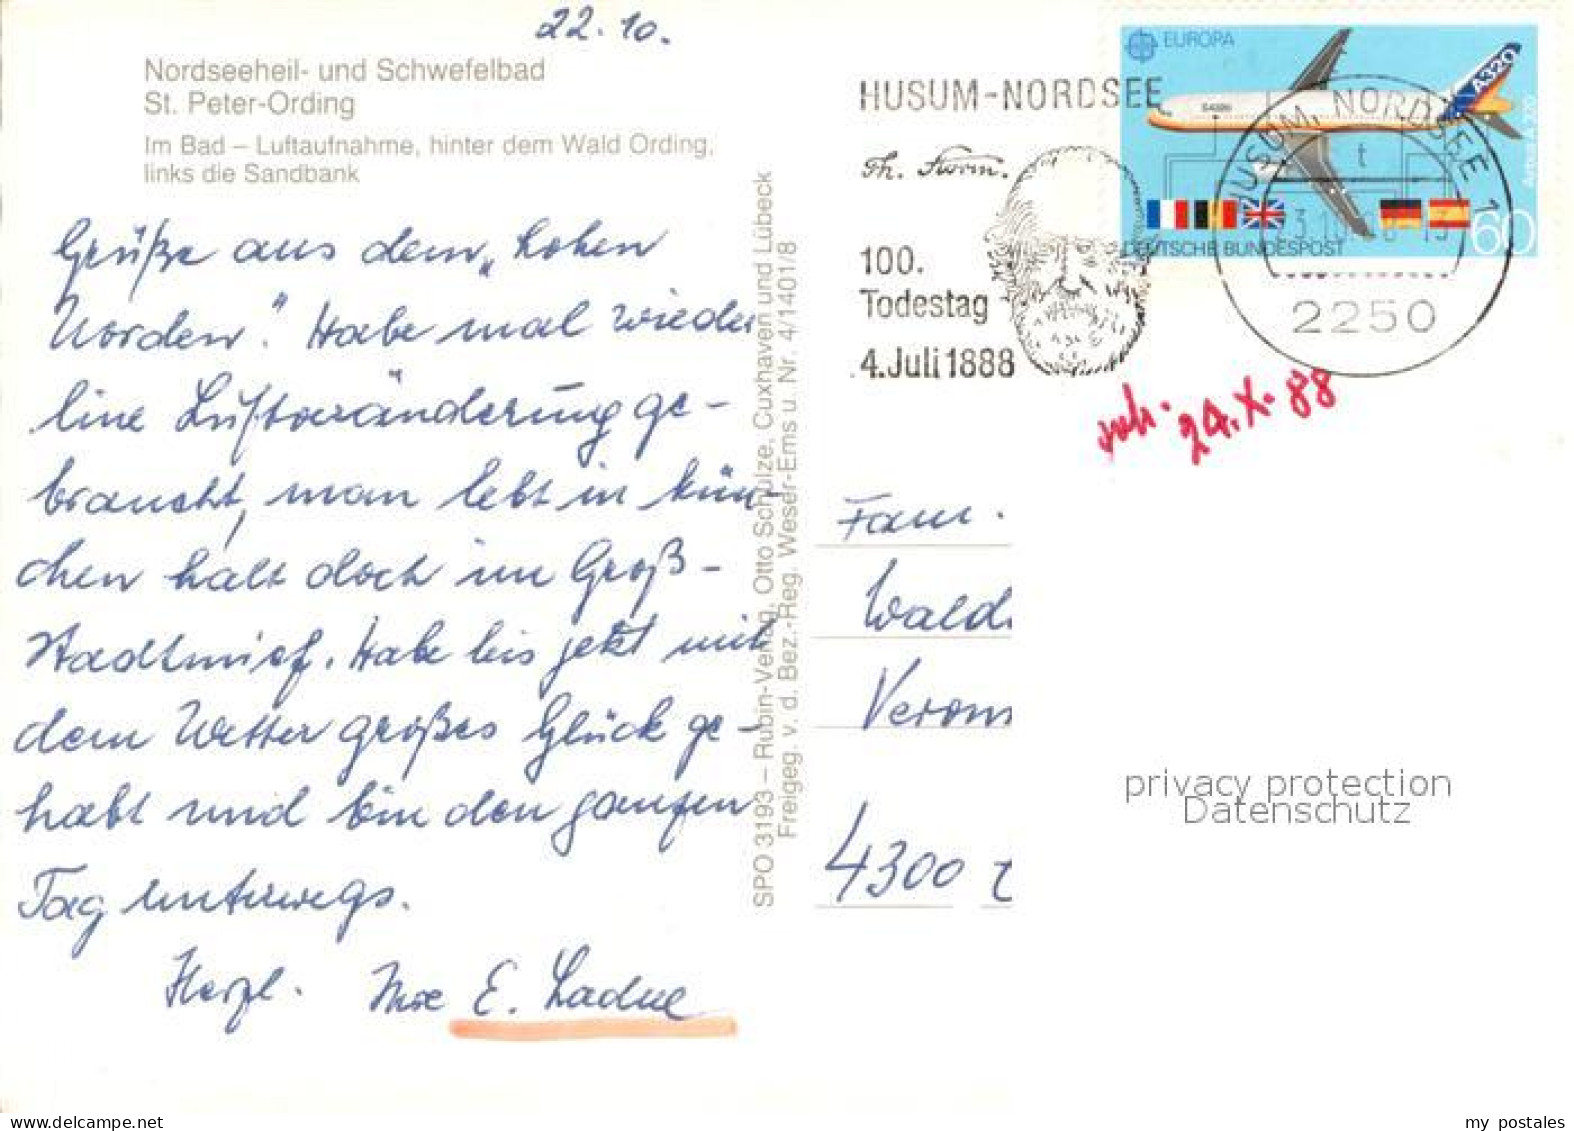 22.10.
Nordseeheil- und Schwefelbad
St. Peter-Ording
Im Bad – Luftaufnahme, hinter dem Wald Ording,
links die Sandbank
Grüße aus dem „hohen
Norden". Habe mal wieder
eine Luftveränderung ge-
braucht, man lebt in Mün-
chen halt doch im Groß-
stadtmief. Habe bis jetzt mit
dem Wetter großes Glück ge-
habt und bin den ganzen
Tag unterwegs.
Herzl. Ihre E.
SPO 3193 – Rubin-Verlag, Otto Schulze, Cuxhaven und Lübeck
Freigeg. v. d. Bez.-Reg. Weser-Ems u. Nr. 4/1401/8
HUSUM-NORDSEE
Th. Storm.
100.
Todestag
4. Juli 1888
EUROPA
A320
Airbus A 320
DEUTSCHE BUNDESPOST
60
HUSUM, NORDSEE 1
t
2250
24.X.88
Fam.
4300
privacy protection
Datenschutz
my postales